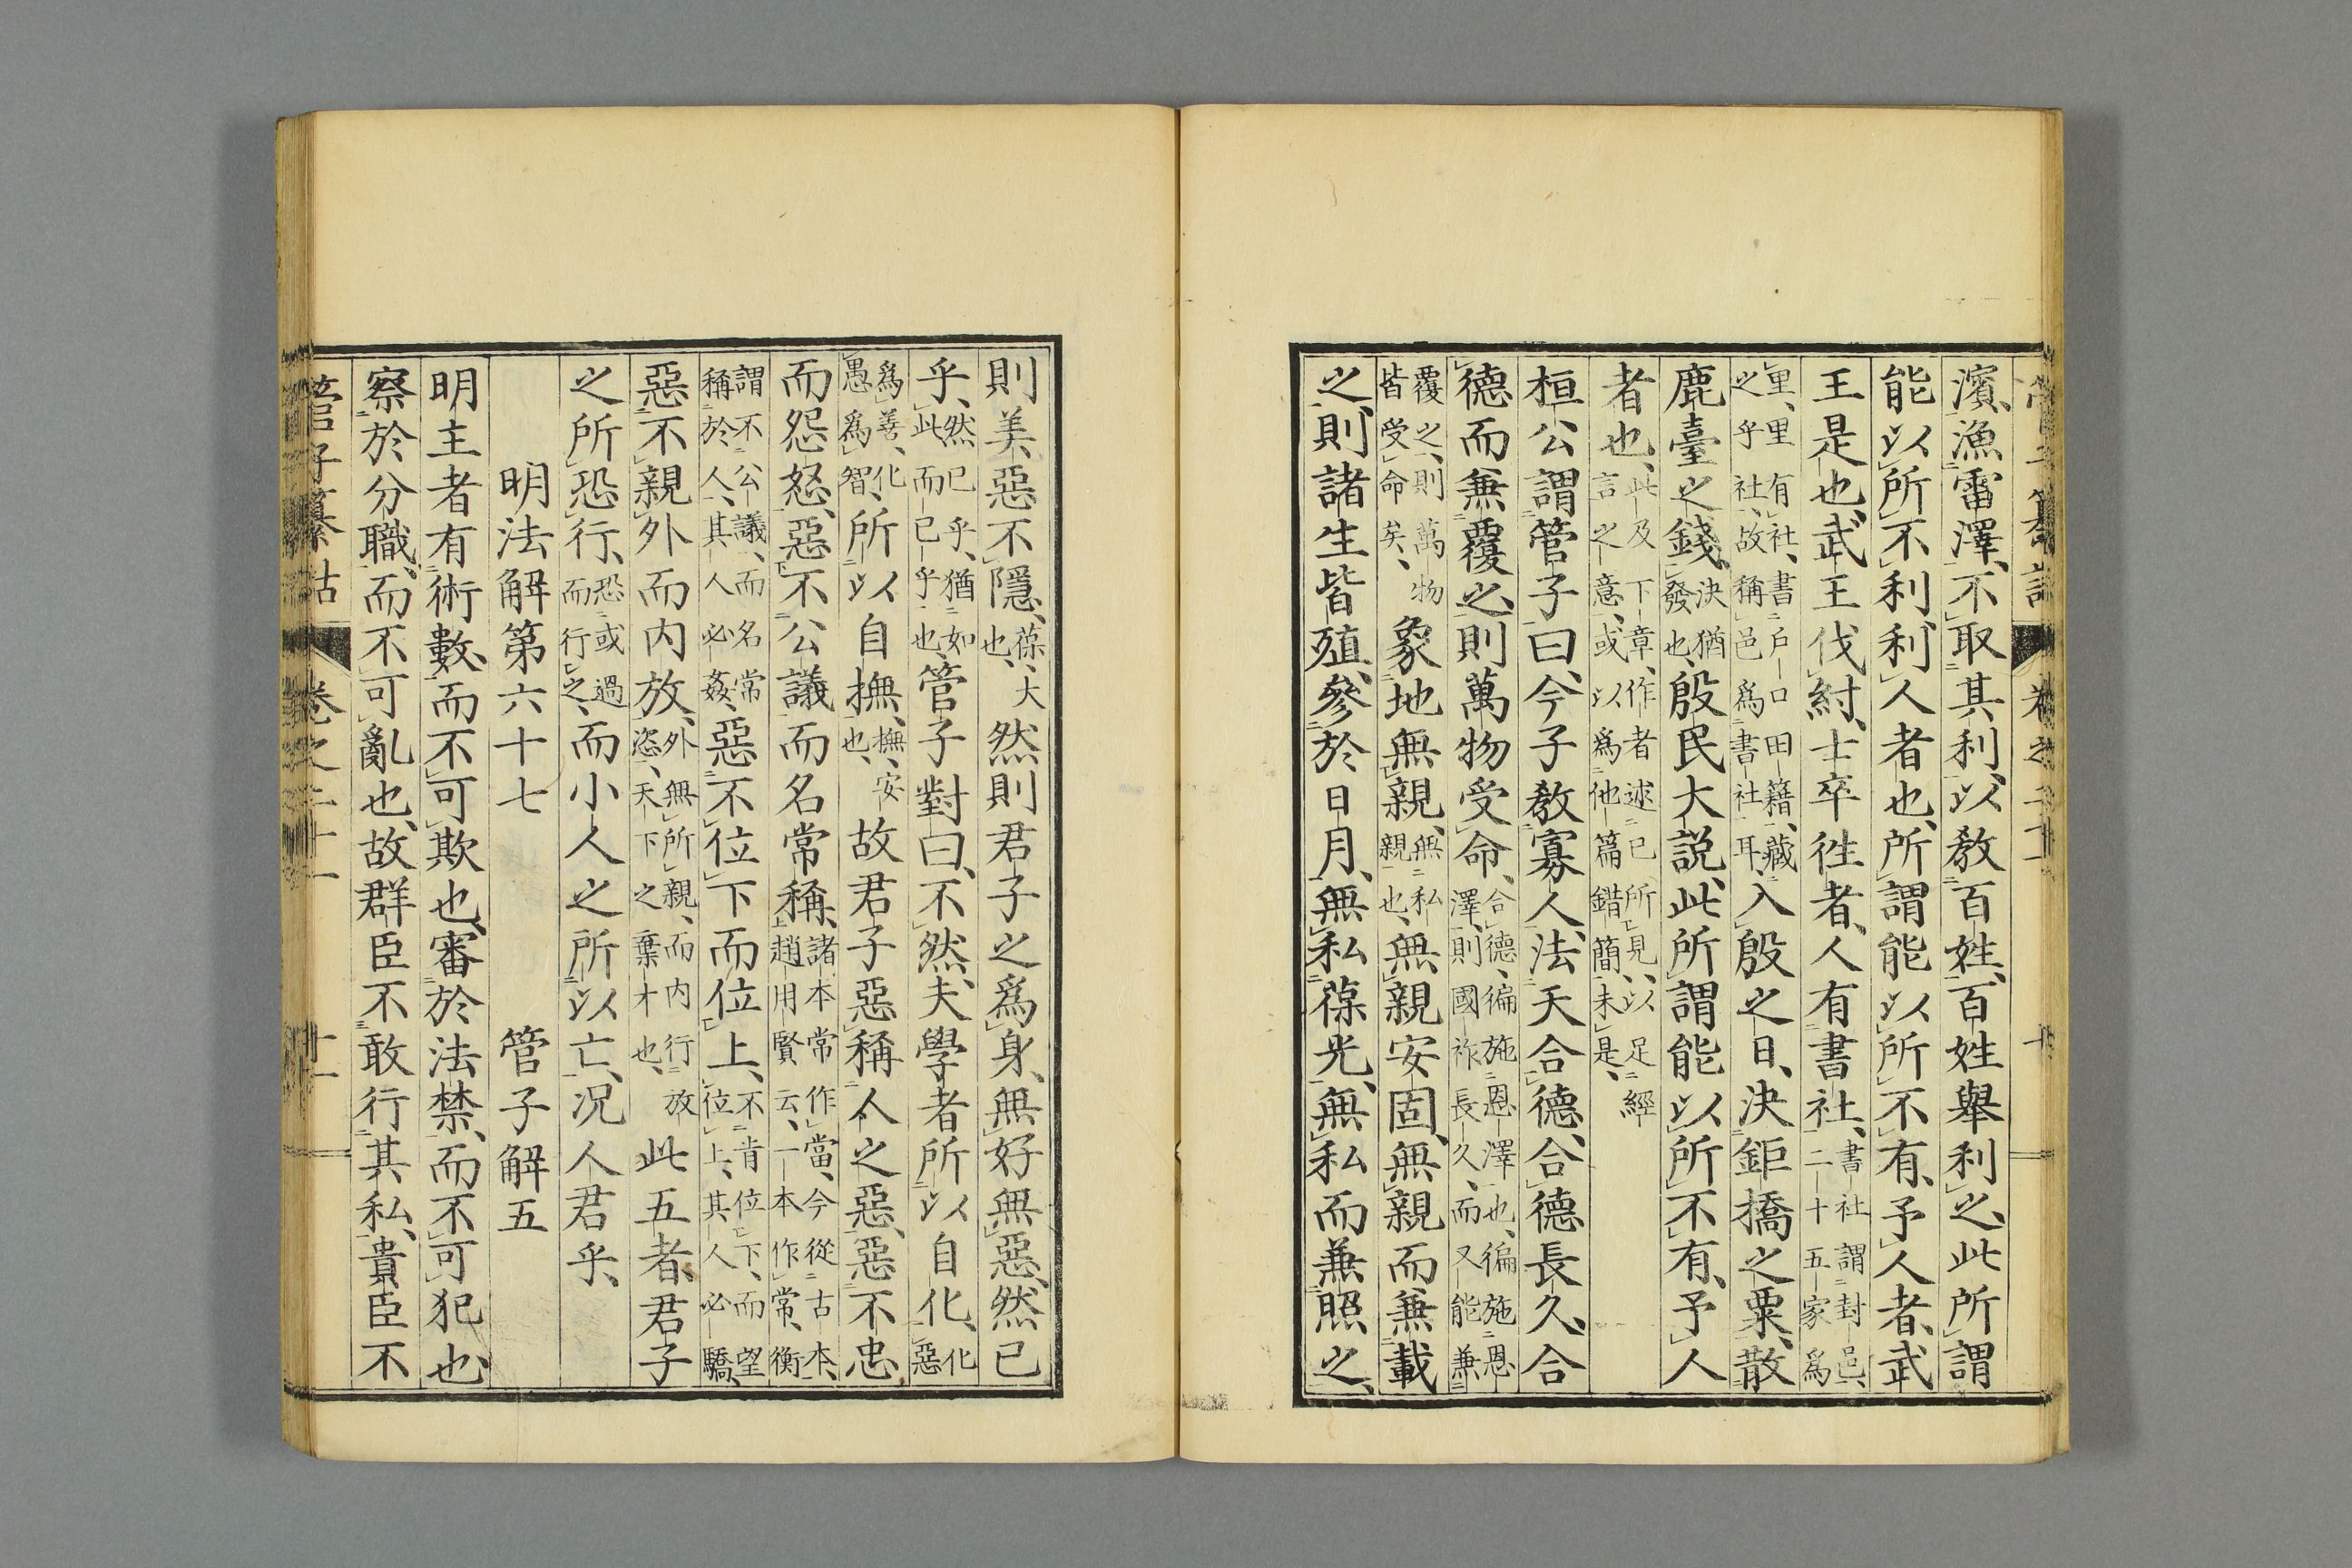 管子纂詁 卷之二十一 十
濱、漁雷澤、不取其利、以教百姓、百姓舉利之、此所謂
能以所不利利人者也、所謂能以所不有、予人者、武
王是也、武王伐紂、士卒徃者、人有書社、書社謂封邑、二十五家爲
里、里有社、書戶口田籍、藏之乎社、故稱邑爲書社耳、入殷之日、決鉅橋之粟、散
鹿臺之錢、決猶發也、殷民大説、此所謂能以所不有、予人
者也、此及下章、作者述己所見、以足經言之意、或以爲他篇錯簡、未是、
桓公謂管子曰、今子教寡人、法天合德、合德長久、合
德而兼覆之、則萬物受命、合德、徧施恩澤也、徧施恩澤、則國祚長久、而又能兼
覆之、則萬物皆受命矣、象地無親、無私親也、無親安固、無親而兼載
之、則諸生皆殖、參於日月、無私葆光、無私而兼照之、
則美惡不隱、葆、大也、然則君子之爲身、無好無惡、然已
乎、然已乎、猶如此而已乎也、管子對曰、不然、夫學者所以自化、化惡
爲善、化愚爲智、所以自撫、撫、安也、故君子惡稱人之惡、惡不忠
而怨怒、惡不公議而名常稱、諸本常作當、今從古本、趙用賢云、一本作常、衡
謂不公議、而名常稱於人、其人必姦、惡不位下而位上、不肯位下、而望位上、其人必驕、
惡不親外而内放、外無所親、而内行放恣、天下之棄才也、此五者、君子
之所恐行、恐或過而行之、而小人之所以亡、况人君乎、
明法解第六十七 管子解五
明主者有術數、而不可欺也、審於法禁、而不可犯也、
察於分職、而不可亂也、故群臣不敢行其私、貴臣不
管子纂詁 卷之二十一 十一